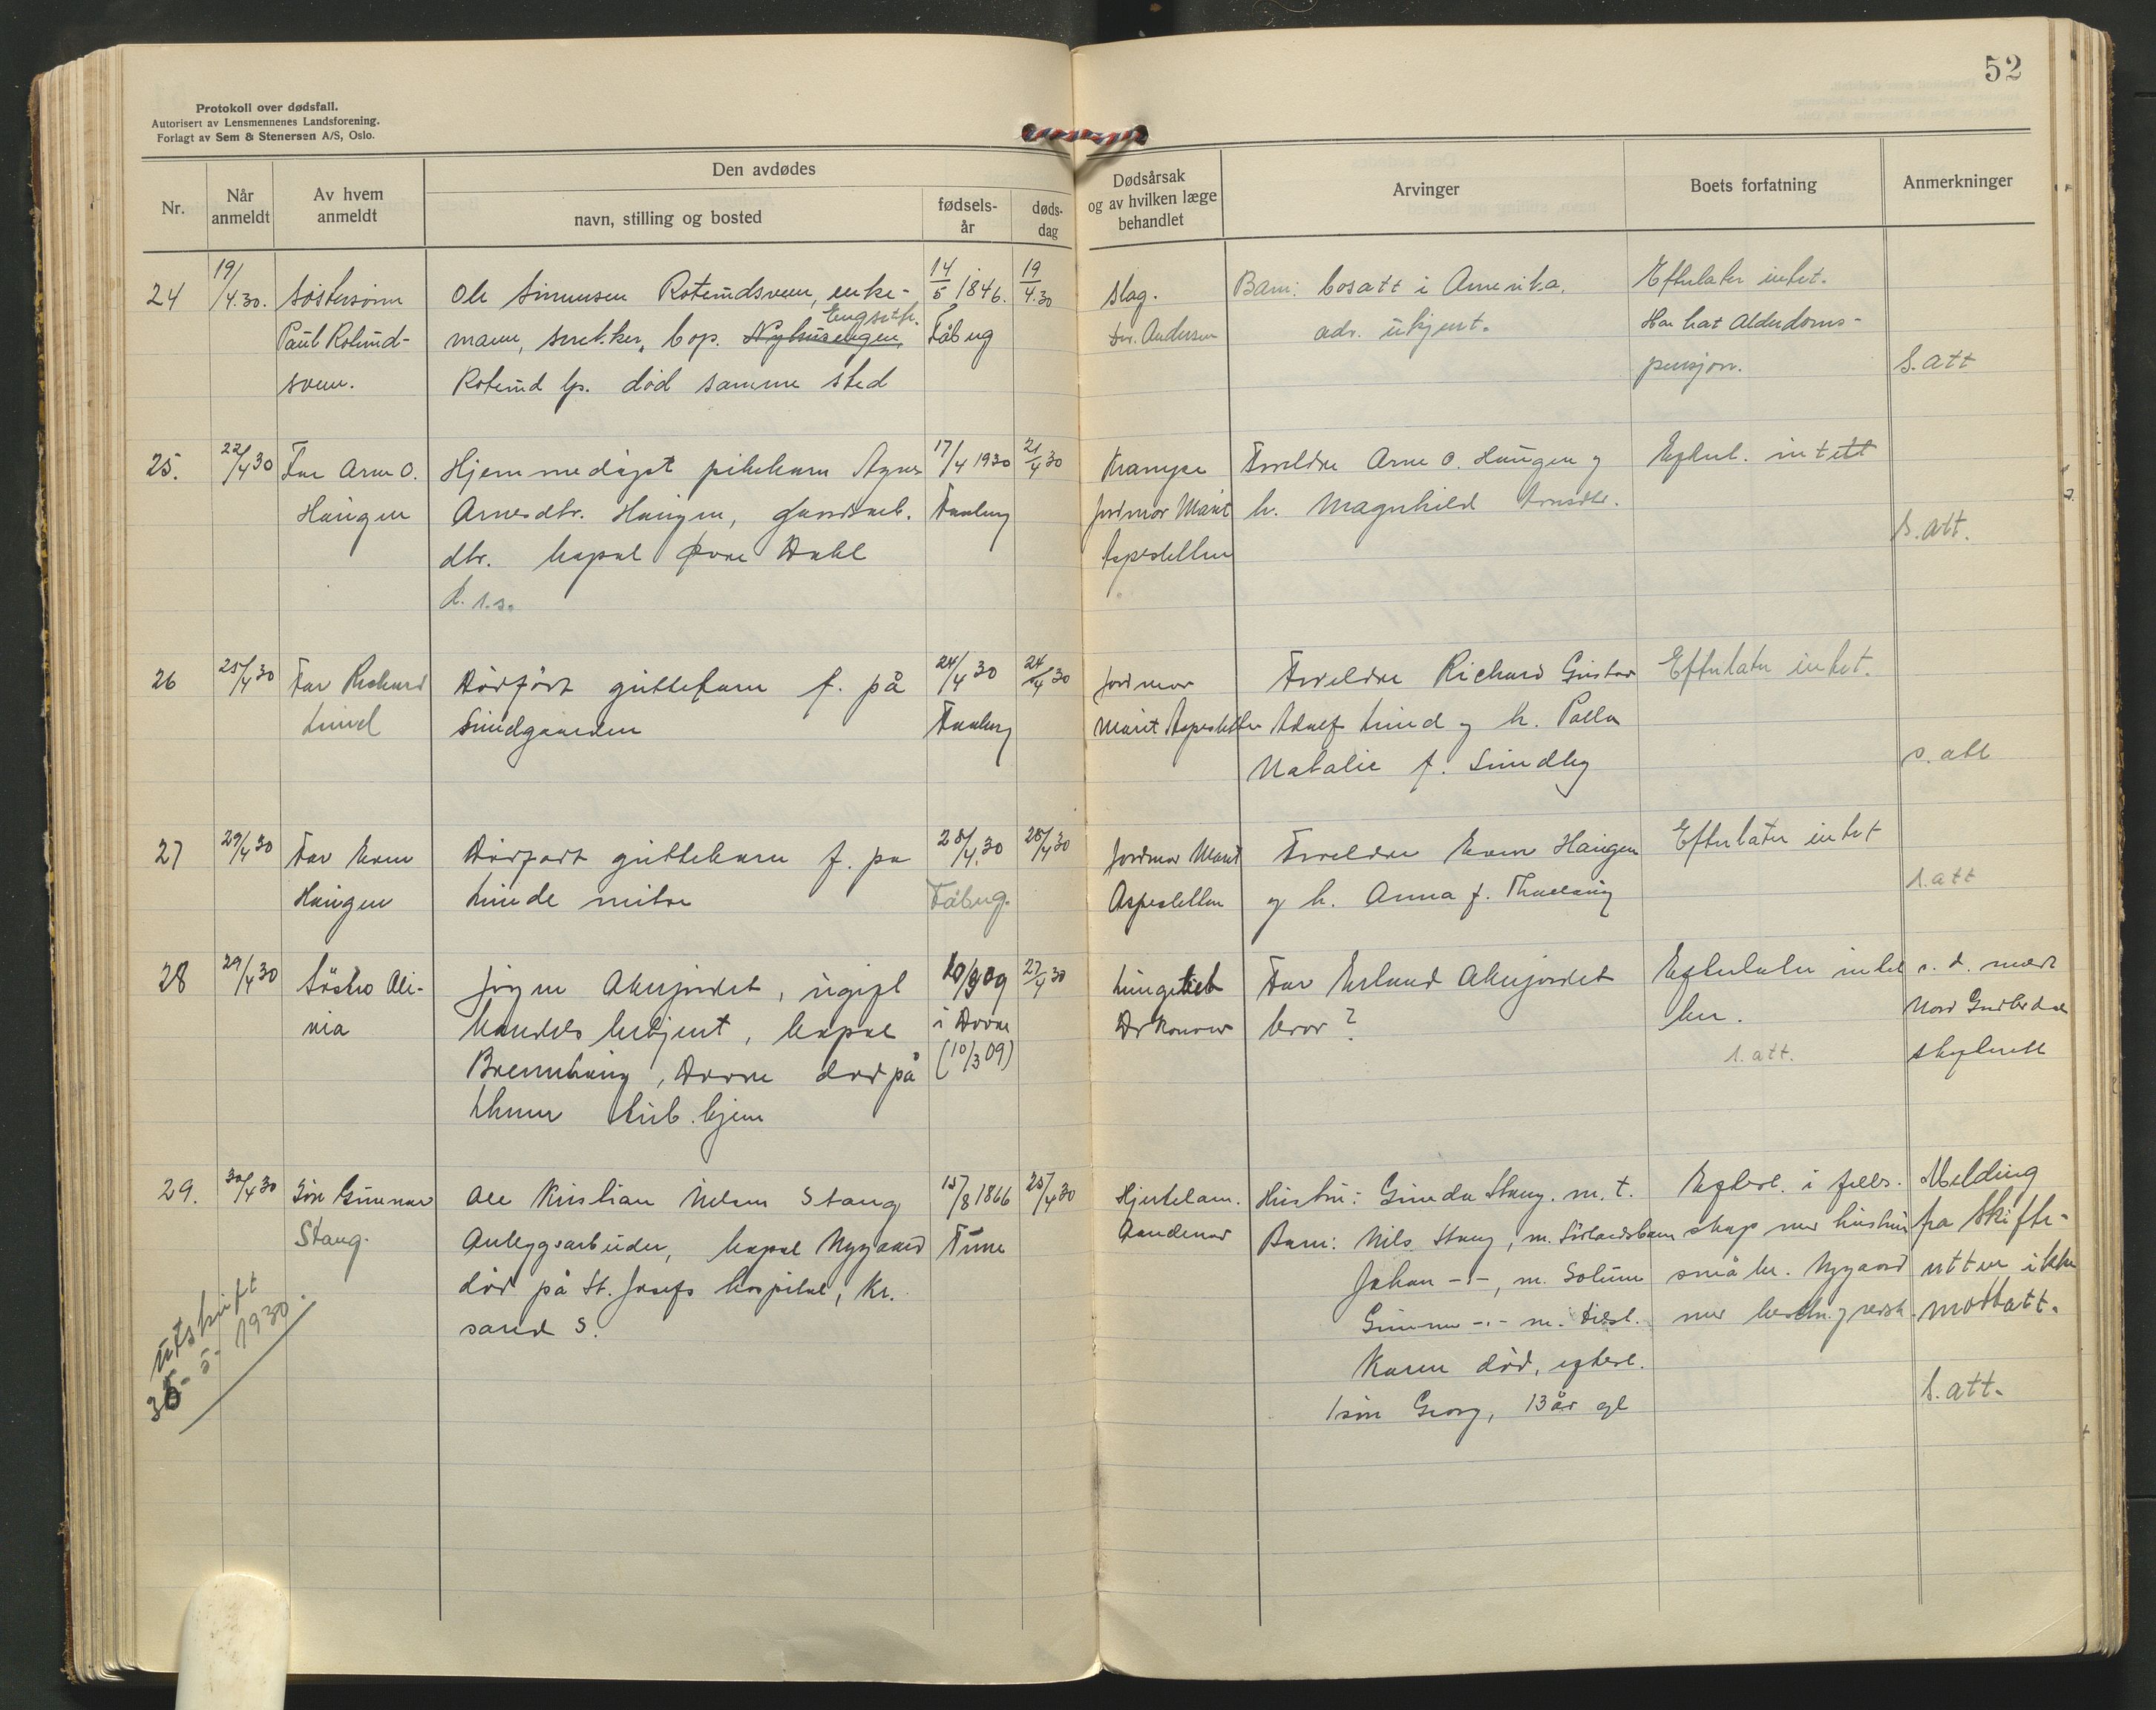 52
Protokoll over dødsfall.
Autorisert av Lensmennenes Landsforening.
Forlagt av Sem & Stenersen A/S, Oslo.
Nr.
Når anmeldt
Av hvem anmeldt
Den avdødes
navn, stilling og bosted
fødsels-år
døds-dag
Dødsårsak og av hvilken læge behandlet
Arvinger
Boets forfatning
Anmerkninger
24
19/4.30.
Søstersønn
Paul Roterud-
sveen.
Ole Simensen Roterudsveen, enke-
Engsetht.
mann, snekker, bop. Nyhusengen,
Roterud fp. død samme sted
14/5 1846.
Fåberg
19/4.30
Slag.
Dr. Andersen
Barn: bosatt i Amerika,
adr. ukjent.
Efterlater intet.
Har hat Alderdoms-
pensjon.
S. att
25.
22/4 30
Far Arne O.
Haugen
Hjemmedøpt pikebarn Agnes
Arnesdtr. Haugen, gardsarb.
dtr. bopæl Øvre Dahl
d. s.s.
17/4 1930
Faaberg
21/4 30
Krampe
Jordmor Marit
Aspesletten
Foreldre Arne O. Haugen og
h. Magnhild Arnesdtr.
Efterl. intett
S. att.
26
25/4 30
Far Richard
Lund
Dødfødt guttebarn f. på
Sundgaarden
24/4 30
Faaberg
24/4 30
Jordmor
Marit Aspesletten
Foreldre Richard Gustav
Adolf Lund og h. Palla
Natalie f. Sundby
Efterlater intet.
s. att
27
29/4 30
Far Even
Haugen
Dødfødt guttebarn f. på
Lunde nitre
28/4 30
Fåberg.
28/4 30
Jordmor Marit
Aspesletten
Foreldre Even Haugen
og h. Anna f.
Efterlater intet
s. att
28
29/4 30
Søster Ali-
via
Jørgen Akerjordet, ugift
handelsbetjent, bopæl
Brennhaug, Dovre død på
Lhmr tub. hjem
10/9 09
i Dovre
(10/3 09)
27/4 30
Lungetub
Dr Konow
Far Erland Akerjordet
bror?
Efterlater intet
her.
s. att.
s. d. medt
Nord Gudbrdal
skifterett
29.
30/4 30
Søn Gunnar
Stang.
Ole Kristian Nilsen Stang
Anleggsarbeider, bopæl Nygaard
død på St. Josefs hospital, Kr.
sand S.
15/8 1866
Tune
25/4 30
Hjertelam.
Hustru: Gunda Stang. m. t.
Barn: Nils Stang, m. Sørlandsbanen
Johan -"-, m. Solum
Gunnar -"- m.
Karen død, efterl.
1 søn Georg, 13 år gl
Efterl. i felles-
skap med hustru
små br. Nygaard
Melding
fra Skifte-
retten ikke
mottatt.
S. att.
Utskrift
5- 1930.